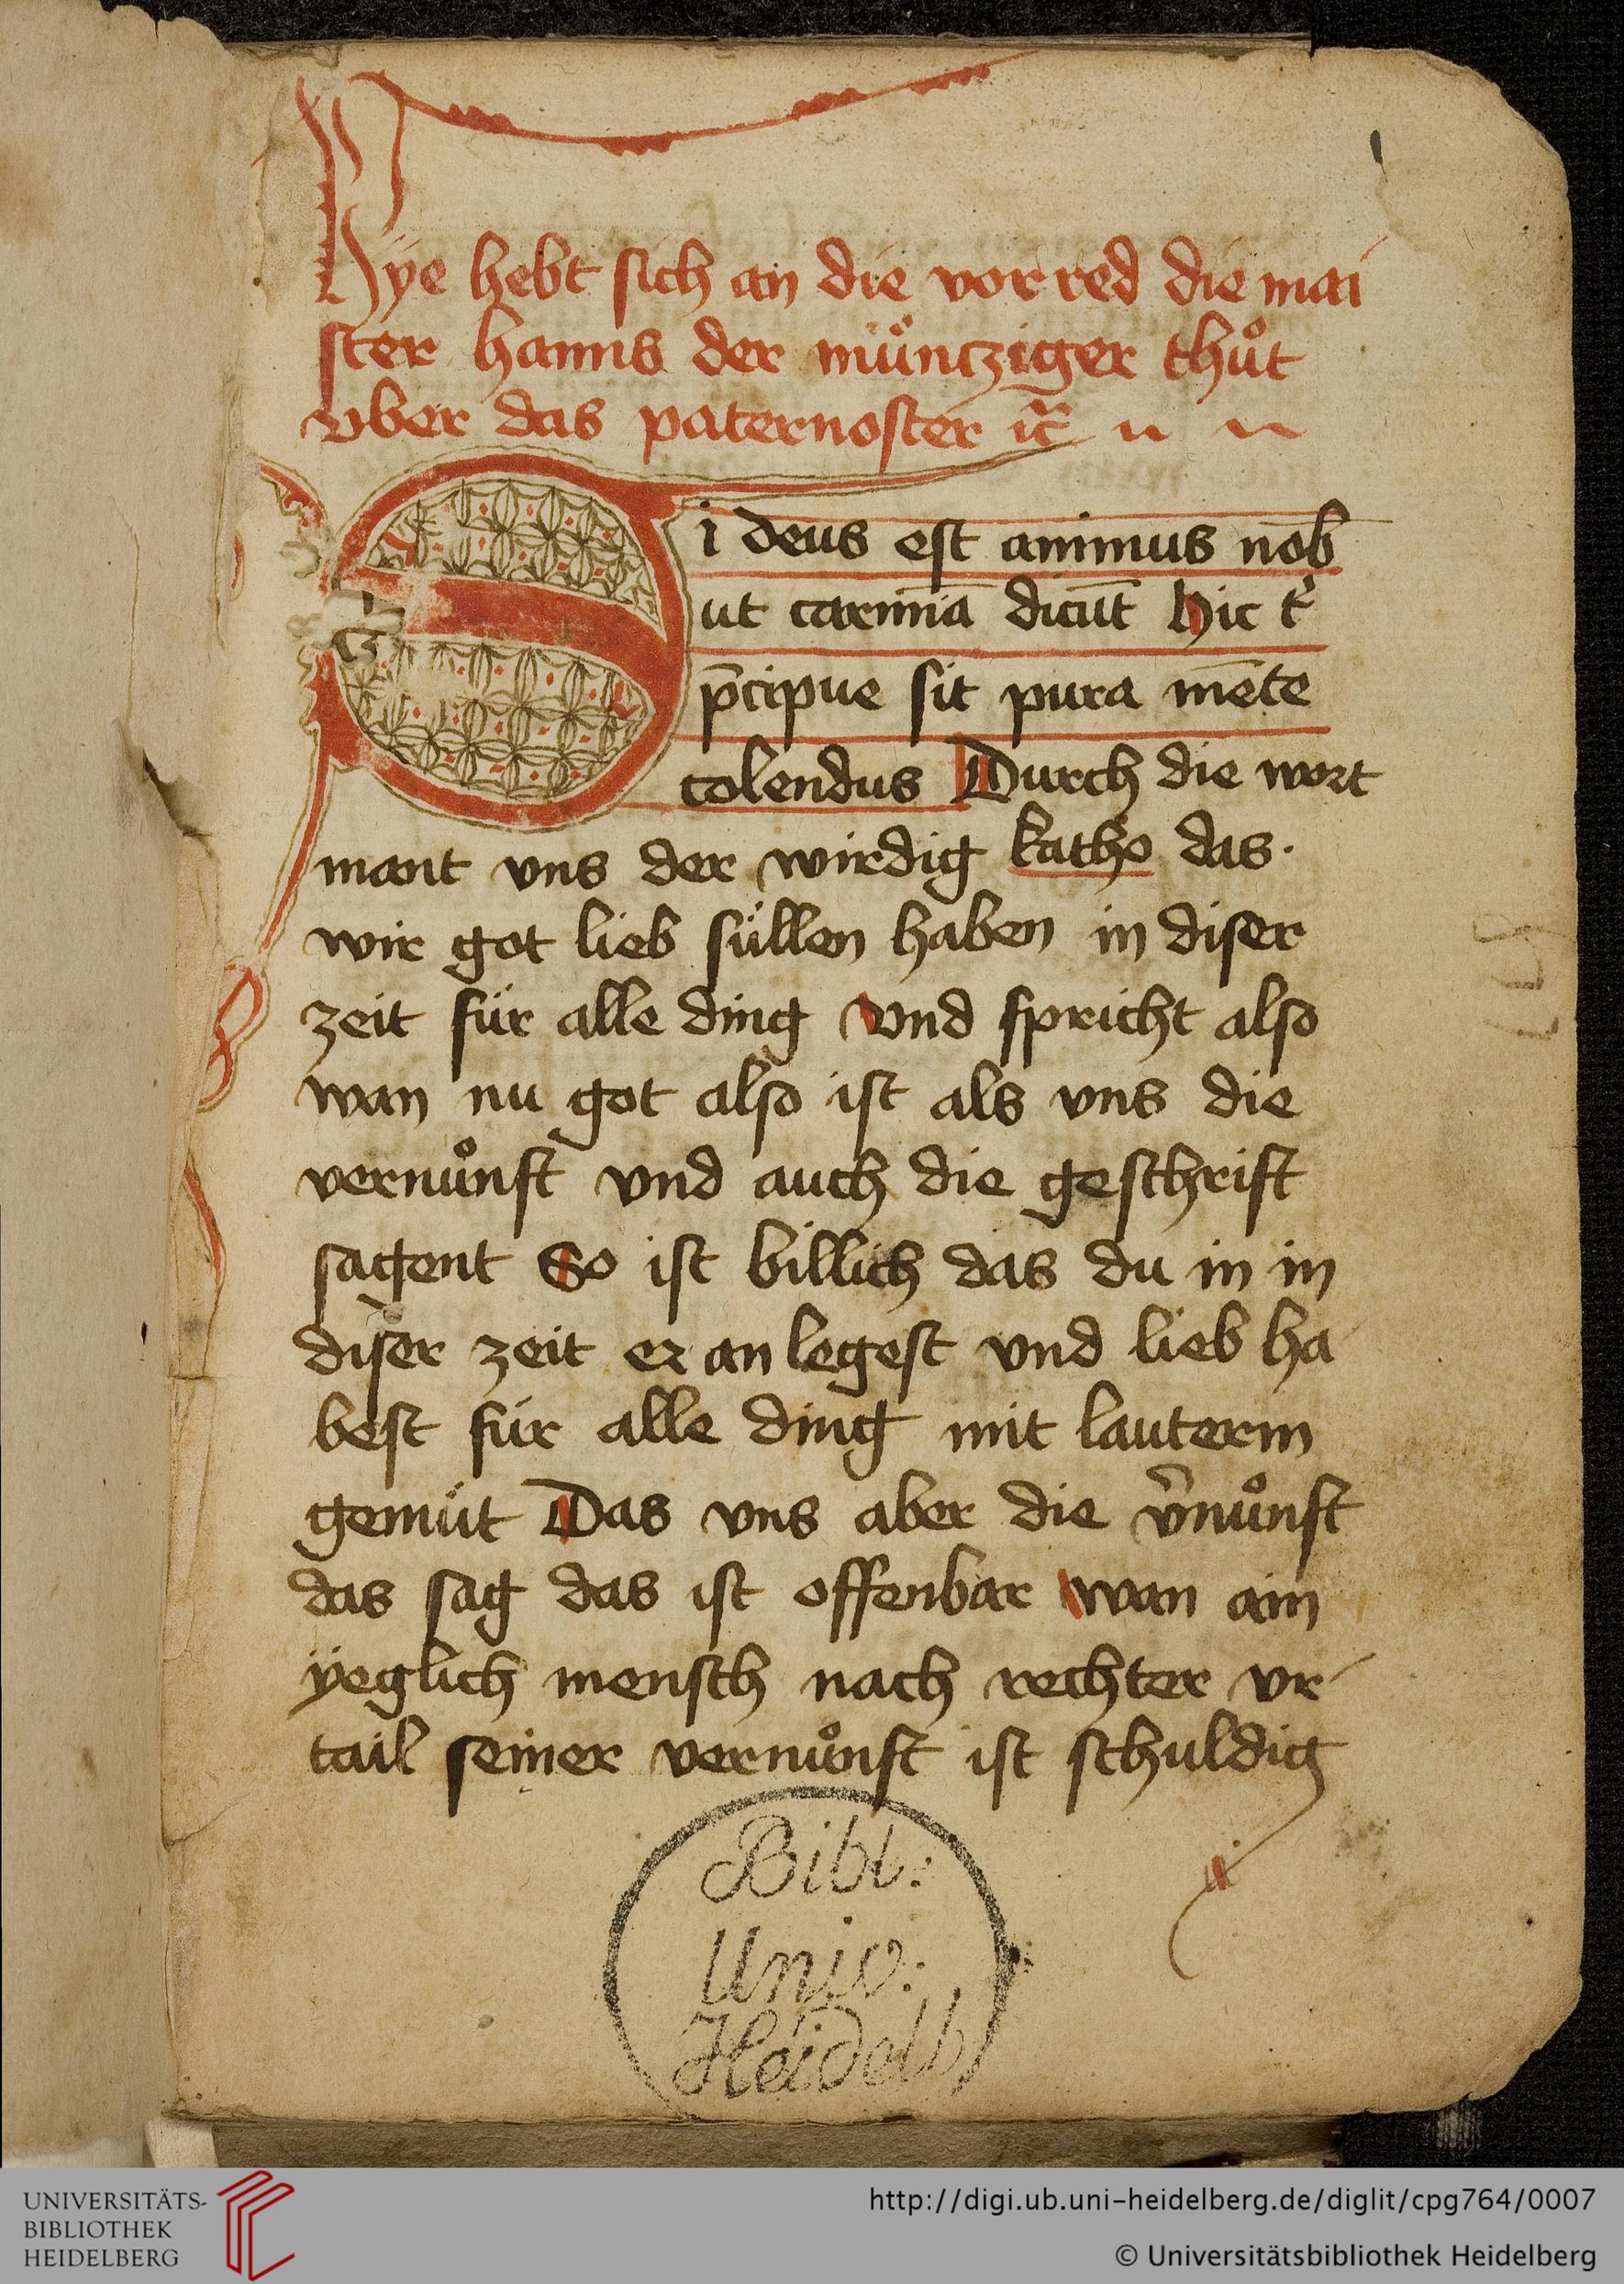 Hÿe hebt sich an die vor red die mai
ster hanns der mu̍ͦntziger thuͦt
vber das paternoster ꝛc̃
Si deus est animus nob̄
ut carmīa dicūt hic t'
p̄cipue sit pura mēte
colendus Durch die wort
mant vns der wirdig katho das·
wir got lieb süllen haben in diser
zeit für alle ding Vnd spricht also
wan nu got also ist als vns die
vernuͦnft vnd auch die geschrift
sagent So ist billich das du in in
diser zeit er an legest vnd lieb ha
best für alle ding mit lauterm
gemüt Das vns aber die v̄nuͦnft
das sag das ist offenbar wan ain
ÿeglich mensch nach rechter vr-
tail seiner vernuͦnft ist schuldig
Bibl:
Univ:
Heidelb
UNIVERSITÄTS-
BIBLIOTHEK
HEIDELBERG
http://digi.ub.uni-heidelberg.de/diglit/cpg764/0007
© Universitätsbibliothek Heidelberg